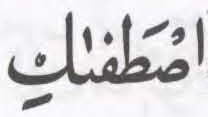 اصْطَفٰىكِ